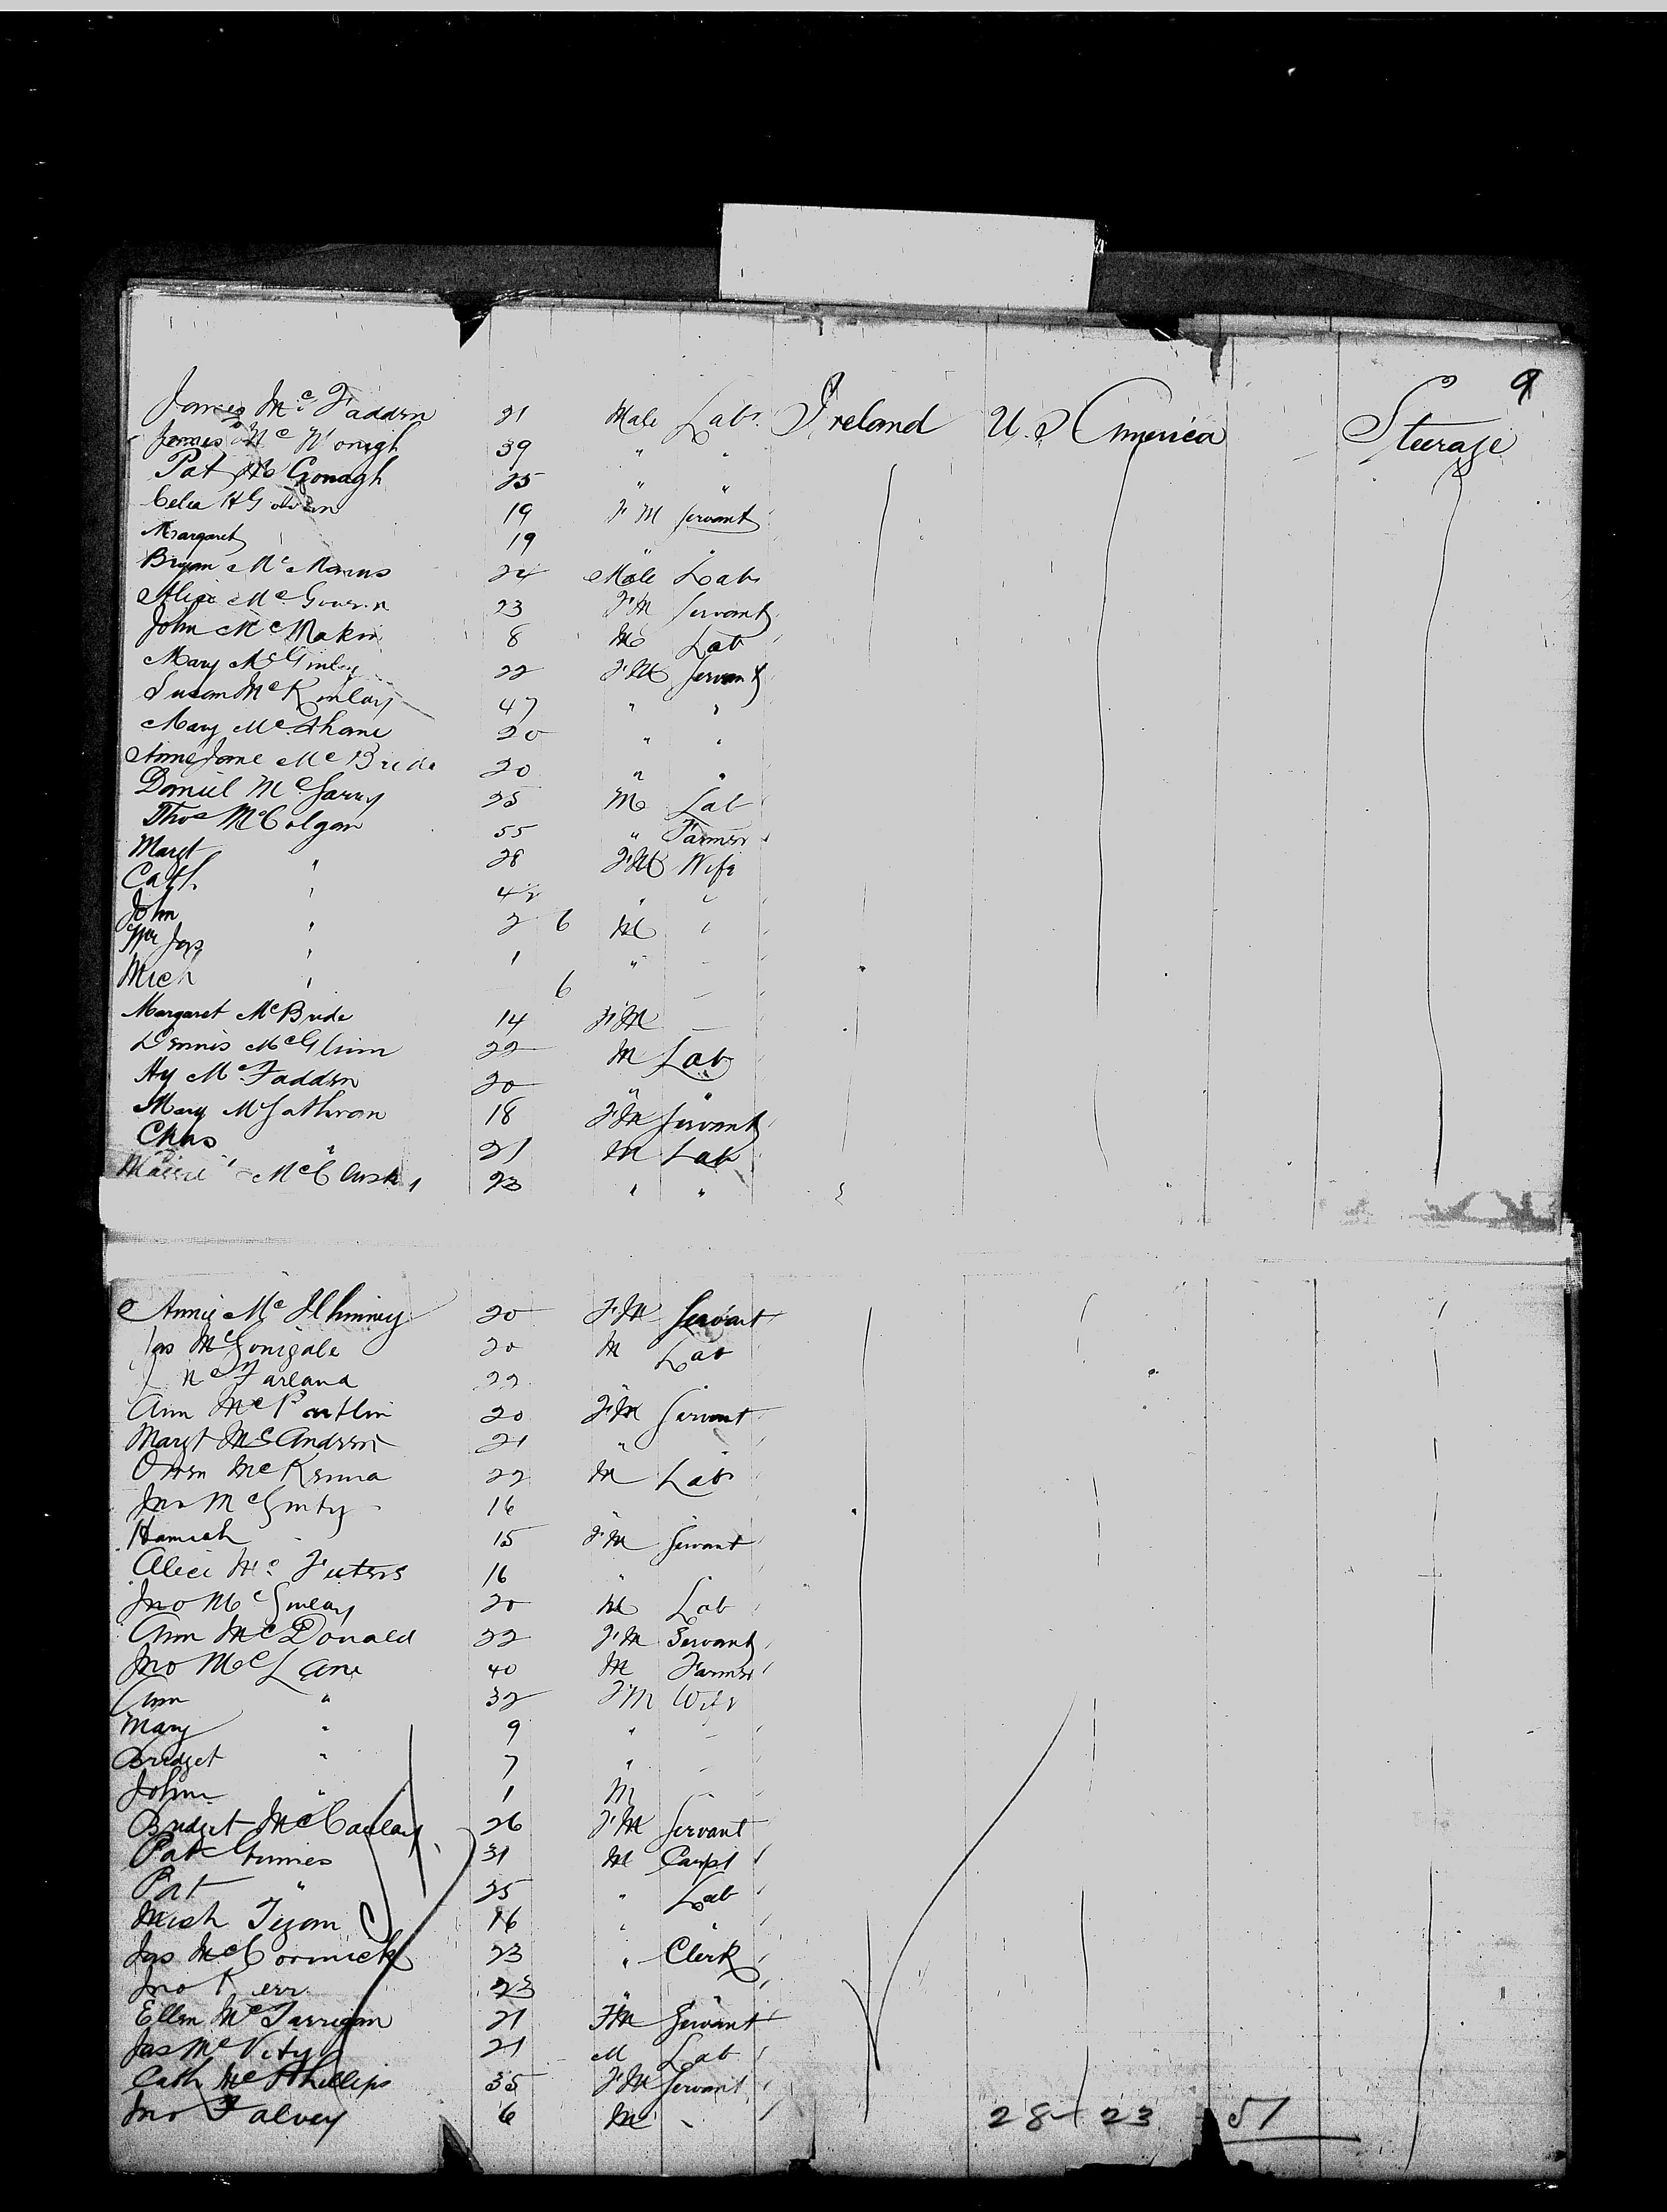 9
James Mc Fadden 21 Male Lab. Ireland U. S America Steerage
James Mc 39 " "
Pat Mc Gonagh 25 " "
Celia 19 F M Servant
Margaret 19 " "
Bryan Mc Manus 24 Male Lab
Alice Mc Govern 23 F M Servant
John Mc Makin 8 M Lab
Mary McGinley 22 F M Servant
Susan Mc Kinlay 47 " "
Mary Mc Shane 20 " "
Anne Jane Mc Bride 20 " "
Daniel Mc Garry 25 M Lab
Thos McColgan 55 " Farmer
Margt " 28 F M Wife
Cath " 4 " "
John " 2 6 M "
Wm Jas " 1 " -
Mich " 6 -
Margaret McBride 14 F M -
Dennis McGlinn 22 M Lab
Hy Mc Fadden 20 " "
Mary 18 F M Servant
Chas " 21 M Lab
McCluskey 23 " "
Annie Mc Ilhinney 20 F M Servant
Jas McGonigale 20 M Lab
Mc Farland 22 "
Ann Mc Partlin 20 F M Servant
Margt McAndrew 21 "
Owen McKenna 22 M Lab
Jno McGinty 16 "
Hannah 15 F M Servant
Alice Mc 16 "
Jno McGinlay 20 M Lab
Ann McDonald 22 F M Servant
Jno McLane 40 M Farmer
Ann " 32 F M Wife
Mary " 9 " -
Bridget " 7 " -
John " 1 M -
Bridget McCaulay 26 F M Servant
Pat Grimes 31 M Carpt
Pat " 25 " Lab
Mich 16 " "
Jas McCormick 23 " Clerk
Jno Kerr 23 " "
Ellen Mc 21 F M Servant
Jas McVity 21 M Lab
Cath McPhillips 35 F M Servant
Jno Falvey 6 M -
28 - 23 51